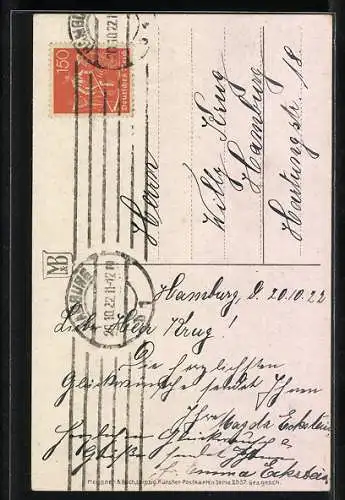 HAMBURG
20.10.22.11-12 N
1
150
Deutsches Reich
Herrn
Willy Krug
Hamburg
Hartungstr. 18
M&B
HAMBURG
20.10.22.11-12 N
1
Hamburg d. 20.10.22
Lieber Herr Krug!
Die herzlichsten
Glückwünsche sendet Ihnen
Ihre Magda Eckstein
Herzlichen Glückwunsch &
Grüße sendet Ihnen
Fr. Emma Eckstein
Meissner & Buch, Leipzig. Künstler-Postkarten Serie 2537. Ges. gesch.